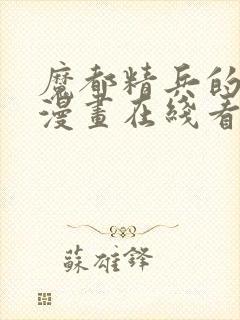 魔都精兵的
漫畫在綫看
蘇雄鋒